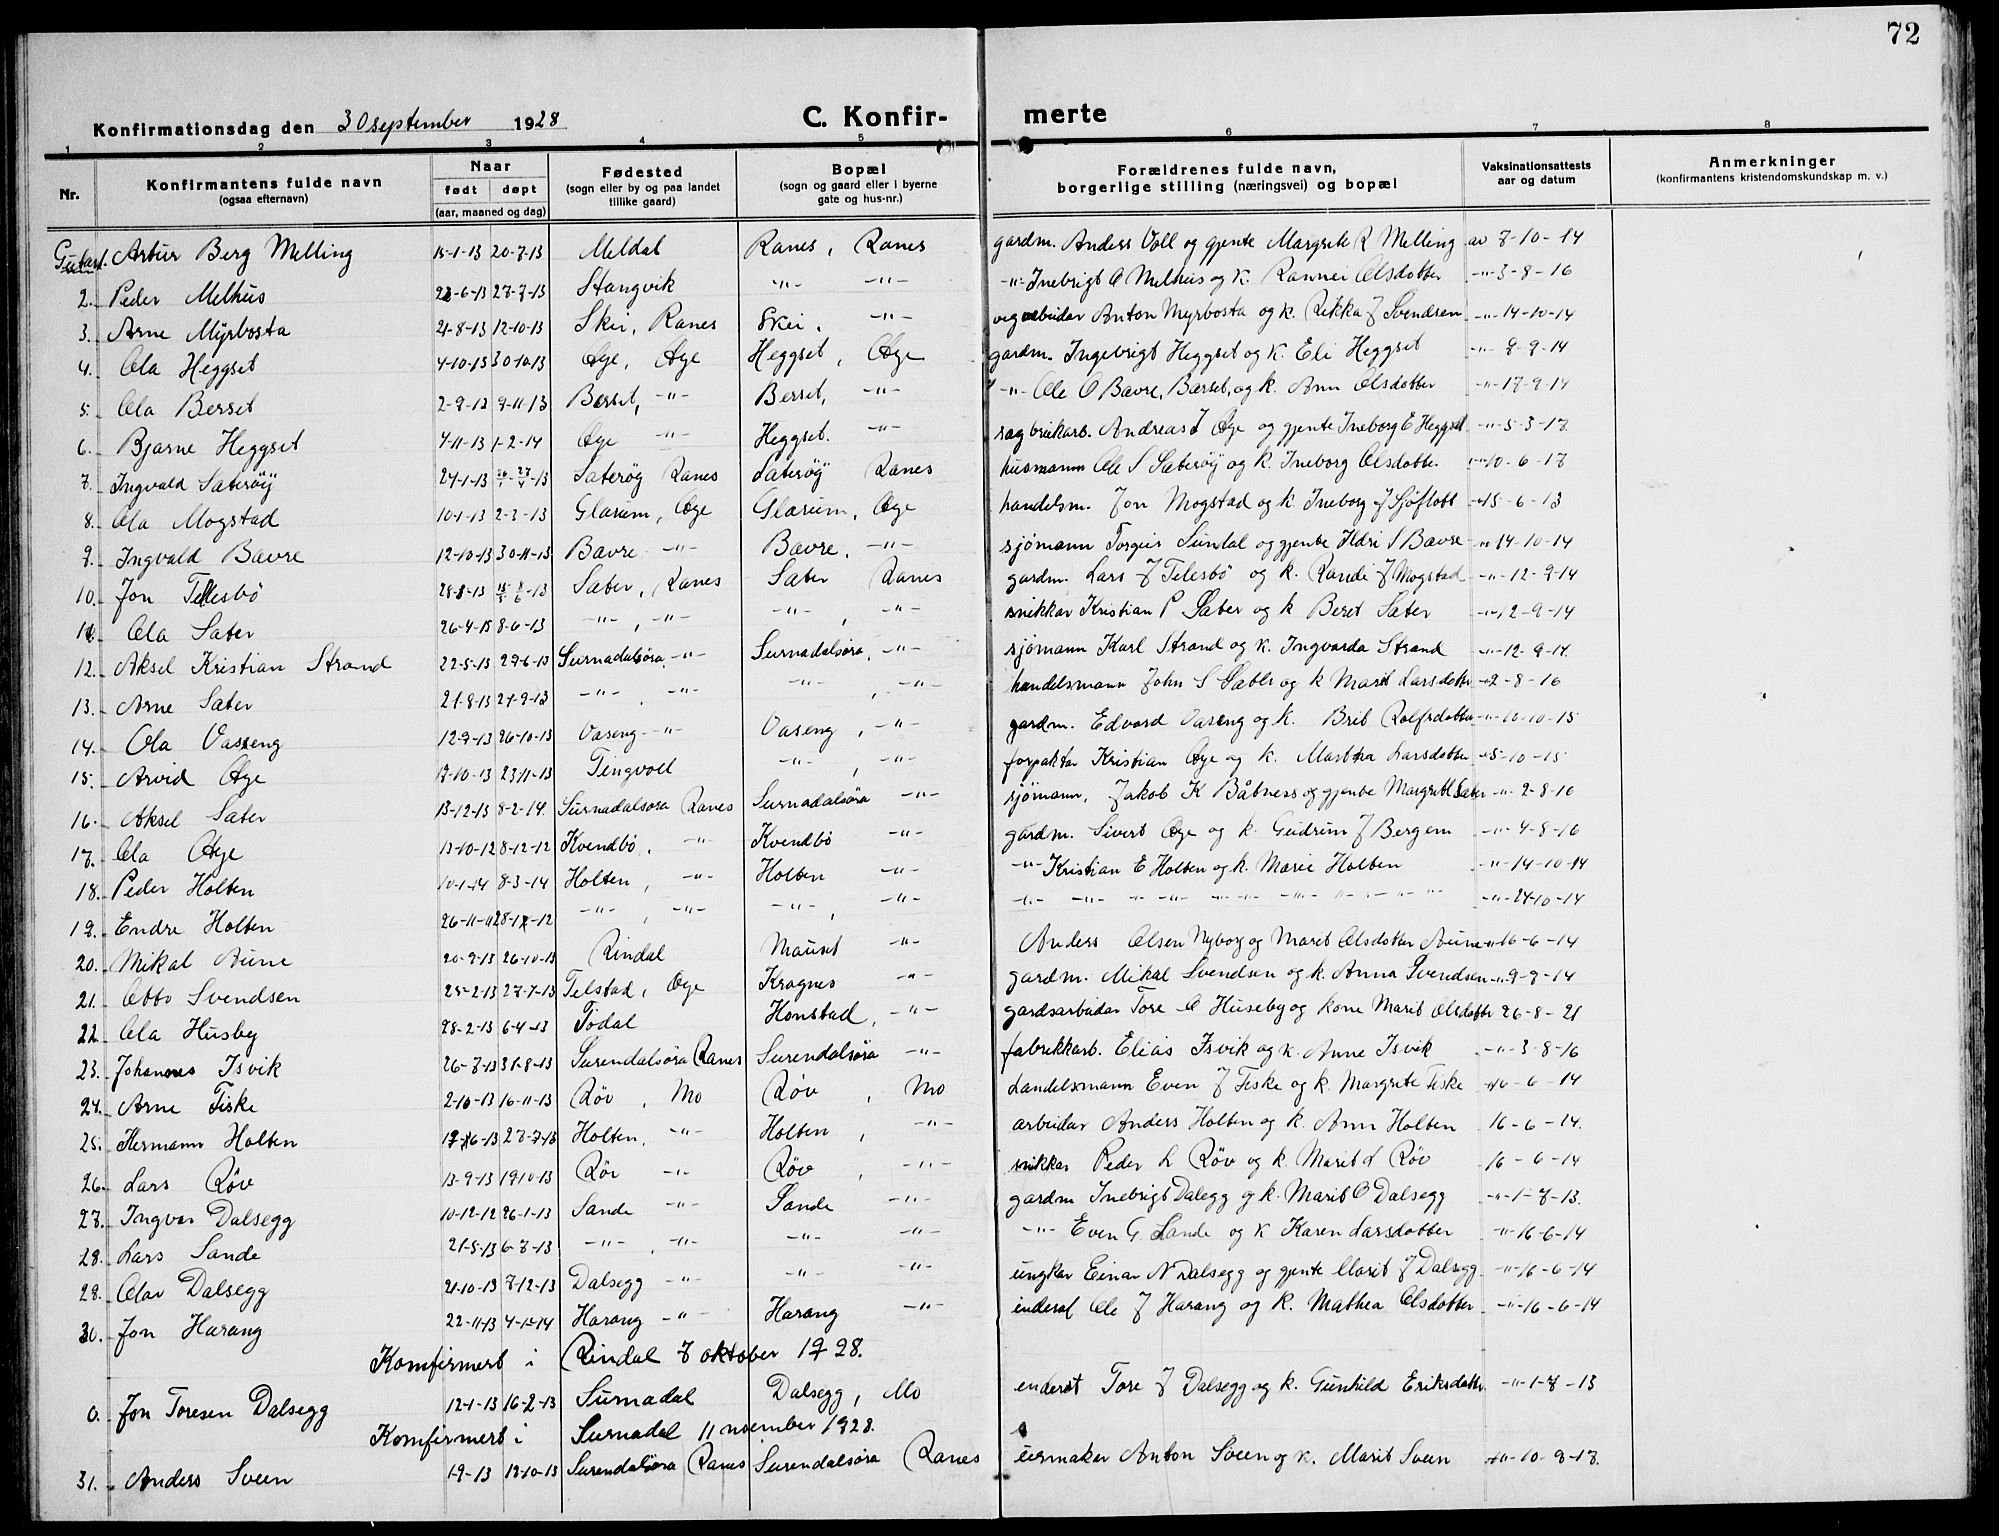 72
Konfirmationsdag den 30 september 1928 C. Konfirmerte
1 2 3 4 5 6 7 8
Nr. Konfirmantens fulde navn (ogsaa efternavn) Naar født døpt (aar, maaned og dag) Fødested (sogn eller by og paa landet tillike gaard) Bopæl (sogn og gaard eller i byerne gate og hus-nr.) Forældrenes fulde navn, borgerlige stilling (næringsvei) og bopæl Vaksinationsattests aar og datum Anmerkninger (konfirmantens kristendomskundskap m. v.)
Artur Berg Melling 15-1-13 20-7-13 Meldal Ranes, Ranes gardm. Anders Voll og gjente Margrete R Melling av 7-10-14
2. Peder Melhus 23-6-13 27-7-13 Stangvik -"- -"- -"- Inebrigt O Melhus og k. Rannei Olsdotter -"- 3-8-16
3. Arne Myrbosta 21-8-13 12-10-13 Skei, Ranes Skei, -"- vegarbeidar Anton Myrbosta og k. Rikka J Svendsen -"- 14-10-14
4. Ola Heggset 4-10-13 30-10-13 Øye, Øye Heggset, Øye gardm. Ingebrigt Heggset og k. Eli Heggset -"- 9-9-14
5. Ola Berset 2-9-13 9-11-13 Berset, -"- Berset, -"- -"- Ole O Bævre, Bærset, og k. Ann Olsdotter -"- 17-9-14
6. Bjarne Heggset 4-11-13 1-2-14 Øye -"- Heggset. -"- sagbrukarb. Andreas J Øye og gjente Ineborg E Heggset -"- 5-3-17
7. Ingvald Sæterøy 24-1-13 Sæterøy Ranes Sæterøy Ranes husmann Ole S Sæterøy og k. Ineborg Olsdotter -"- 10-6-17
8. Ola Mogstad 10-1-13 2-3-13 Glærum, Øye Glærum, Øye handelsm. Jon Mogstad og k. Ineborg J Sjøflott -"- 15-6-13
9. Ingvald Bævre 12-10-13 30-11-13 Bævre -"- Bævre, -"- sjømann Torgeir Sundal og gjente Ildri S Bævre -"- 14-10-14
10. Jon Telesbø 28-8-13 Sæter, Ranes Sæter Ranes gardm. Lars J Telesbø og k. Randi J Mogstad -"- 12-9-14
11. Ola Sæter 26-4-13 8-6-13 -"-, -"- -"-, -"- snikkar Kristian P Sæter og k Beret Sæter -"- 12-9-14
12. Aksel Kristian Strand 22-5-13 27-6-13 Surnadalsøra, -"- Surnadalsøra, -"- sjømann Karl Strand og k. Ingvarda Strand -"- 12-9-14
13. Arne Sæter 21-8-13 21-9-13 -"- -"- -"-, -"- handelsmann John S Sæter og k Marit Larsdotter -"- 2-8-16
14. Ola Vaseng 12-9-13 26-10-13 Vaseng -"- Vaseng, -"- gardm. Edvard Vaseng og k. Brit Rolfsdotter -"- 10-10-15
15. Arvid Øye 17-10-13 23-11-13 Tingvoll -"-, -"- forpaktar Kristian Øye og k. Martha Larsdotter -"- 5-10-15
16. Aksel Sæter 13-12-13 8-2-14 Surnadalsøra Ranes Surnadalsøra -"- sjømann, Jakob K Båtness og gjente Margrete Sæter -"- 2-8-16
17. Ola Øye 13-10-12 8-12-12 Kvendbø, -"- Kvendbø -"- gardm. Sivert Øye og k. Gudrun J Bergem -"- 4-8-16
18. Peder Holten 10-1-14 8-3-14 Holten, -"- Holten -"- -"- Kristian E Holten og k. Marie Holten -"- 14-10-14
19. Endre Holten 26-11-11 28-1-12 -"-, -"- -"-, -"- -"- -"- -"- -"- -"- -"- -"- -"- 24-10-14
20. Mikal Aune 20-9-13 26-10-13 Rindal Mauset -"- Anders Olsen Nyborg og Marit Olsdotter Aune -"- 16-6-14
21. Otto Svendsen 25-2-13 27-7-13 Telstad, Øye Kragnes -"- gardm. Mikal Svendsen og k. Anna Svendsen -"- 9-9-14
22. Ola Husby 28-2-13 6-4-13 Todal Honstad, -"- gardsarbeidar Tore O Huseby og kone Marit Olsdotter 26-8-21
23. Johannes Isvik 26-7-13 31-8-13 Surendalsøra Ranes Surendalsøra -"- fabrikkarb. Elias Isvik og k. Anne Isvik -"- 3-8-16
24. Arne Fiske 2-10-13 16-11-13 Røv, Mo Røv, Mo handelsmann Even J Fiske og k. Margrete Fiske -"- 16-6-14
25. Hermann Holten 17-6-13 27-7-13 Holten, -"- Holten, -"- arbeidar Anders Holten og k. Ann Holten 16-6-14.
26. Lars Røv 13-9-13 19-10-13 Røv -"- Røv, -"- snikkar Peder L Røv og k. Marit L Røv 16-6-14
27. Ingvar Dalsegg 10-12-12 26-1-13 Sande -"- Sande -"- gardm Inebrigt Dalegg og k. Marit O Dalsegg -"- 1-7-13.
28. Lars Sande 21-5-13 6-7-13 -"-, -"- -"- -"- -"- Even G Sande og k Karen Larsdotter -"- 16-6-14
28. Olav Dalsegg 21-10-13 7-12-13 Dalsegg -"- -"- -"- ungkar Einar N Dalsegg og gjente Marit J Dalsegg -"- 16-6-14
30. Jon Harang 22-11-13 4-1-14 Harang -"- Harang -"- inderst Ole J Harang og k. Mathea Olsdotter -"- 16-6-14
Komfirmert i Rindal 7 oktober 1928.
0. Jon Toresen Dalsegg 12-1-13 16-2-13 Surnadal Dalsegg, Mo inderst Tore J Dalsegg og k. Gunhild Eriksdotter -"- 1-7-13
Komfirmert i Surnadal 11 november 1928.
31. Anders Sveen 1-9-13 19-10-13 Surendalsøra Ranes Surendalsøra Ranes urmaker Anton Sveen og k. Marit Sveen -"- 10-9-17.